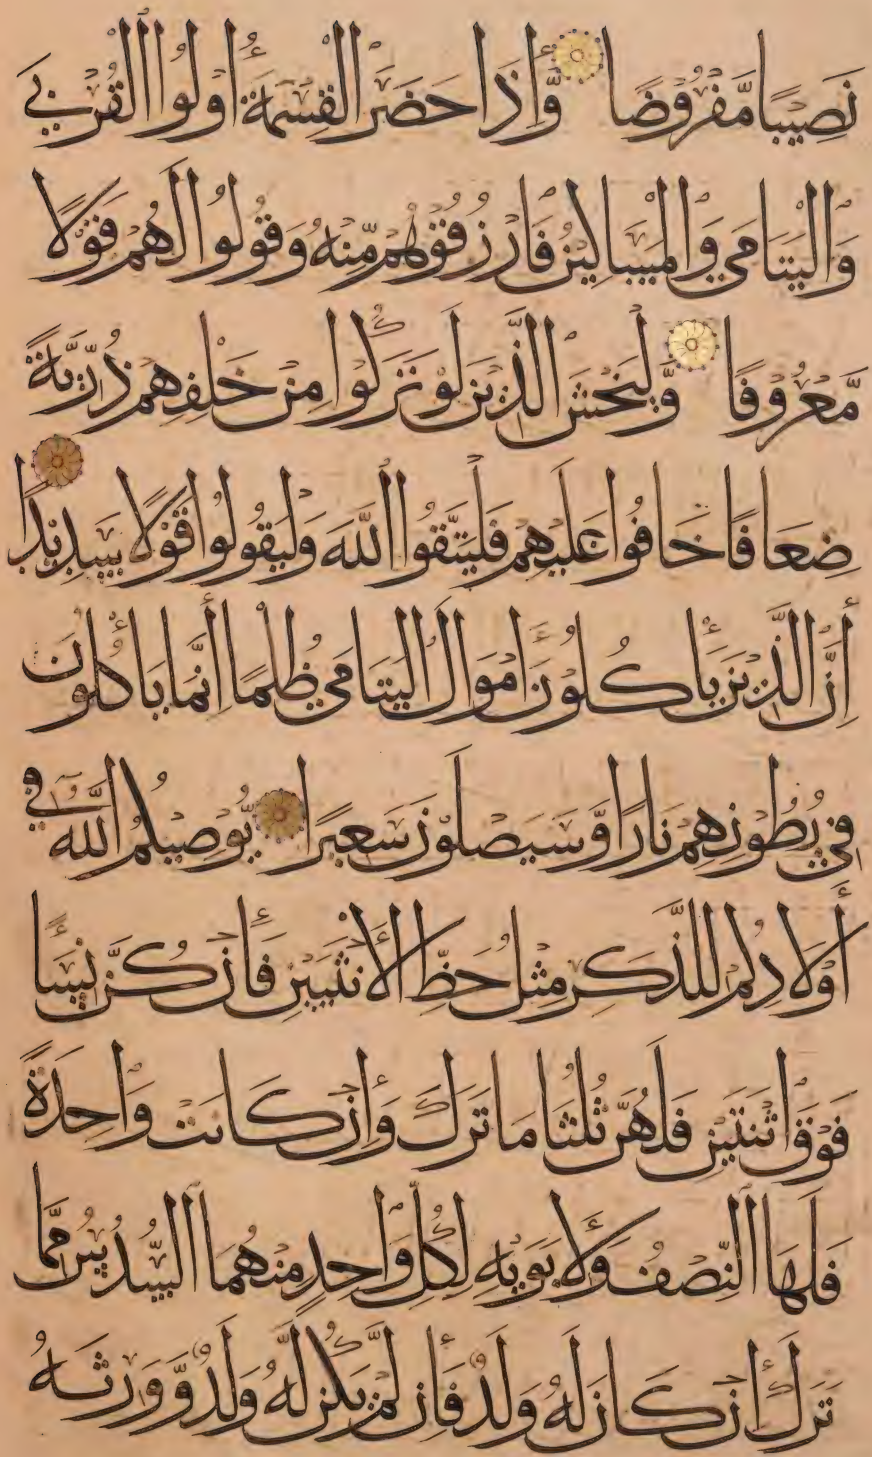 نَصِيبًا مَّفْرُوضًا وَإِذَا حَضَرَ الْقِسْمَةَ أُولُوا الْقُرْبَى
وَالْيَتَامَى وَالْمَسَاكِينُ فَارْزُقُوهُمْ مِّنْهُ وَقُولُوا لَهُمْ قَوْلًا
مَّعْرُوفًا وَلْيَخْشَ الَّذِينَ لَوْ تَرَكُوا مِنْ خَلْفِهِمْ ذُرِّيَّةً
ضِعَافًا خَافُوا عَلَيْهِمْ فَلْيَتَّقُوا اللَّهَ وَلْيَقُولُوا قَوْلًا سَدِيدًا
إِنَّ الَّذِينَ يَأْكُلُونَ أَمْوَالَ الْيَتَامَى ظُلْمًا إِنَّمَا يَأْكُلُونَ
فِي بُطُونِهِمْ نَارًا وَّسَيَصْلَوْنَ سَعِيرًا يُوصِيكُمُ اللَّهُ فِي
أَوْلَادِكُمْ لِلذَّكَرِ مِثْلُ حَظِّ الْأُنْثَيَيْنِ فَإِنْ كُنَّ نِسَاءً
فَوْقَ اثْنَتَيْنِ فَلَهُنَّ ثُلُثَا مَا تَرَكَ وَإِنْ كَانَتْ وَاحِدَةً
فَلَهَا النِّصْفُ وَلِأَبَوَيْهِ لِكُلِّ وَاحِدٍ مِنْهُمَا السُّدُسُ مِمَّا
تَرَكَ إِنْ كَانَ لَهُ وَلَدٌ فَإِنْ لَّمْ يَكُنْ لَّهُ وَلَدٌ وَّوَرِثَهُ